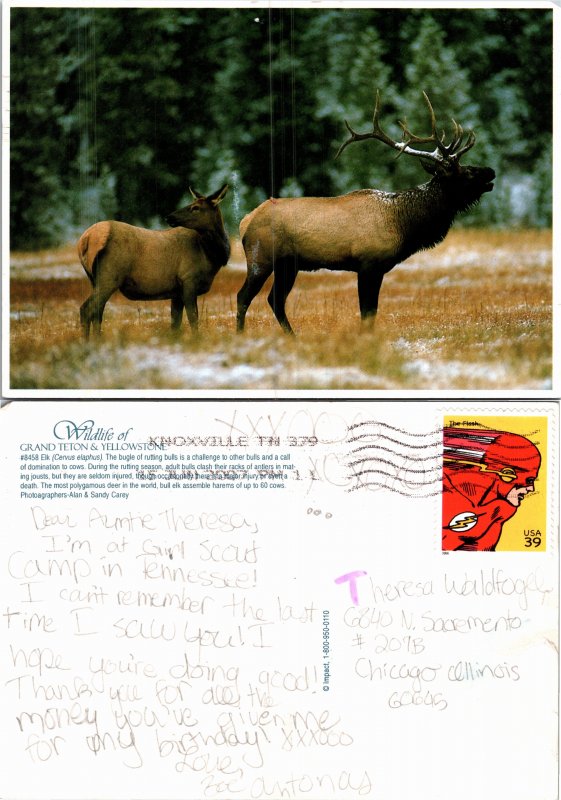 Wildlife of
GRAND TETON & YELLOWSTONE
#8458 Elk (Cervus elaphus). The bugle of rutting bulls is a challenge to other bulls and a call
of domination to cows. During the rutting season, adult bulls clash their racks of antlers in mat-
ing jousts, but they are seldom injured, though occasionally there is a major injury or even a
death. The most polygamous deer in the world, bull elk assemble harems of up to 60 cows.
Photoagraphers-Alan & Sandy Carey
XXXOOO
KNOXVILLE TN 379
JUN 2007 PM 1
The Flash
USA
39
Dear Auntie Theresa,
I'm at Girl Scout
Camp in Tennessee!
I can't remember the last
time I saw you! I
hope you're doing good!
Thank you for all the
money you've given me
for my birthday! XXXOOO
Love,
Zoe Antonas
© Impact, 1-800-950-0110
Theresa Waldfogel
6840 N. Sacramento
# 207B
Chicago Illinois
60645